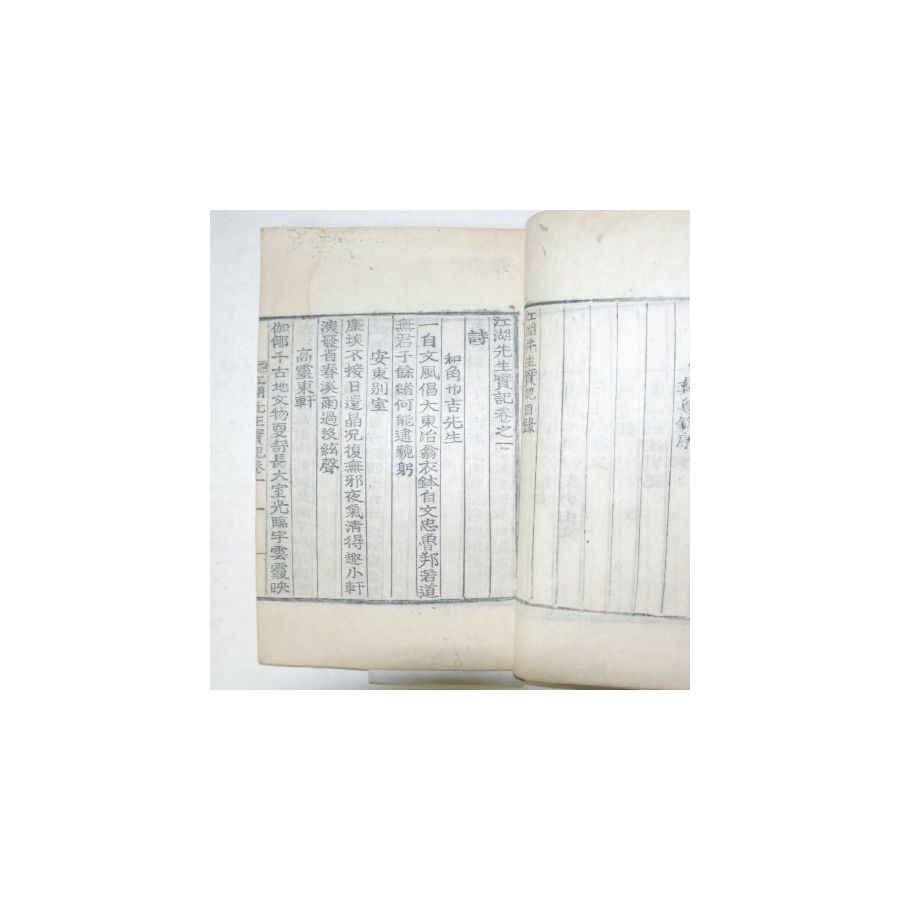 江湖先生實記目錄
江湖先生實記卷之一
詩
和角巾吉先生
一自文風倡大東冶翁衣鉢自文忠魯邦若道
無君子餘緖何能逮藐躬
安東別室
塵埃不接日還晶況復無邪夜氣淸得趣小軒
渙發省春溪雨過沒絃聲
高靈東軒
伽倻千古地文物夏舒長大室光臨宇雲霞映
江湖先生實記卷一 一